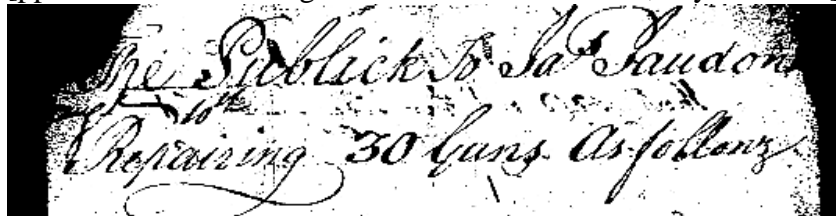 The Publick To Jas Paudon
10th
Repairing 30 Guns As follows